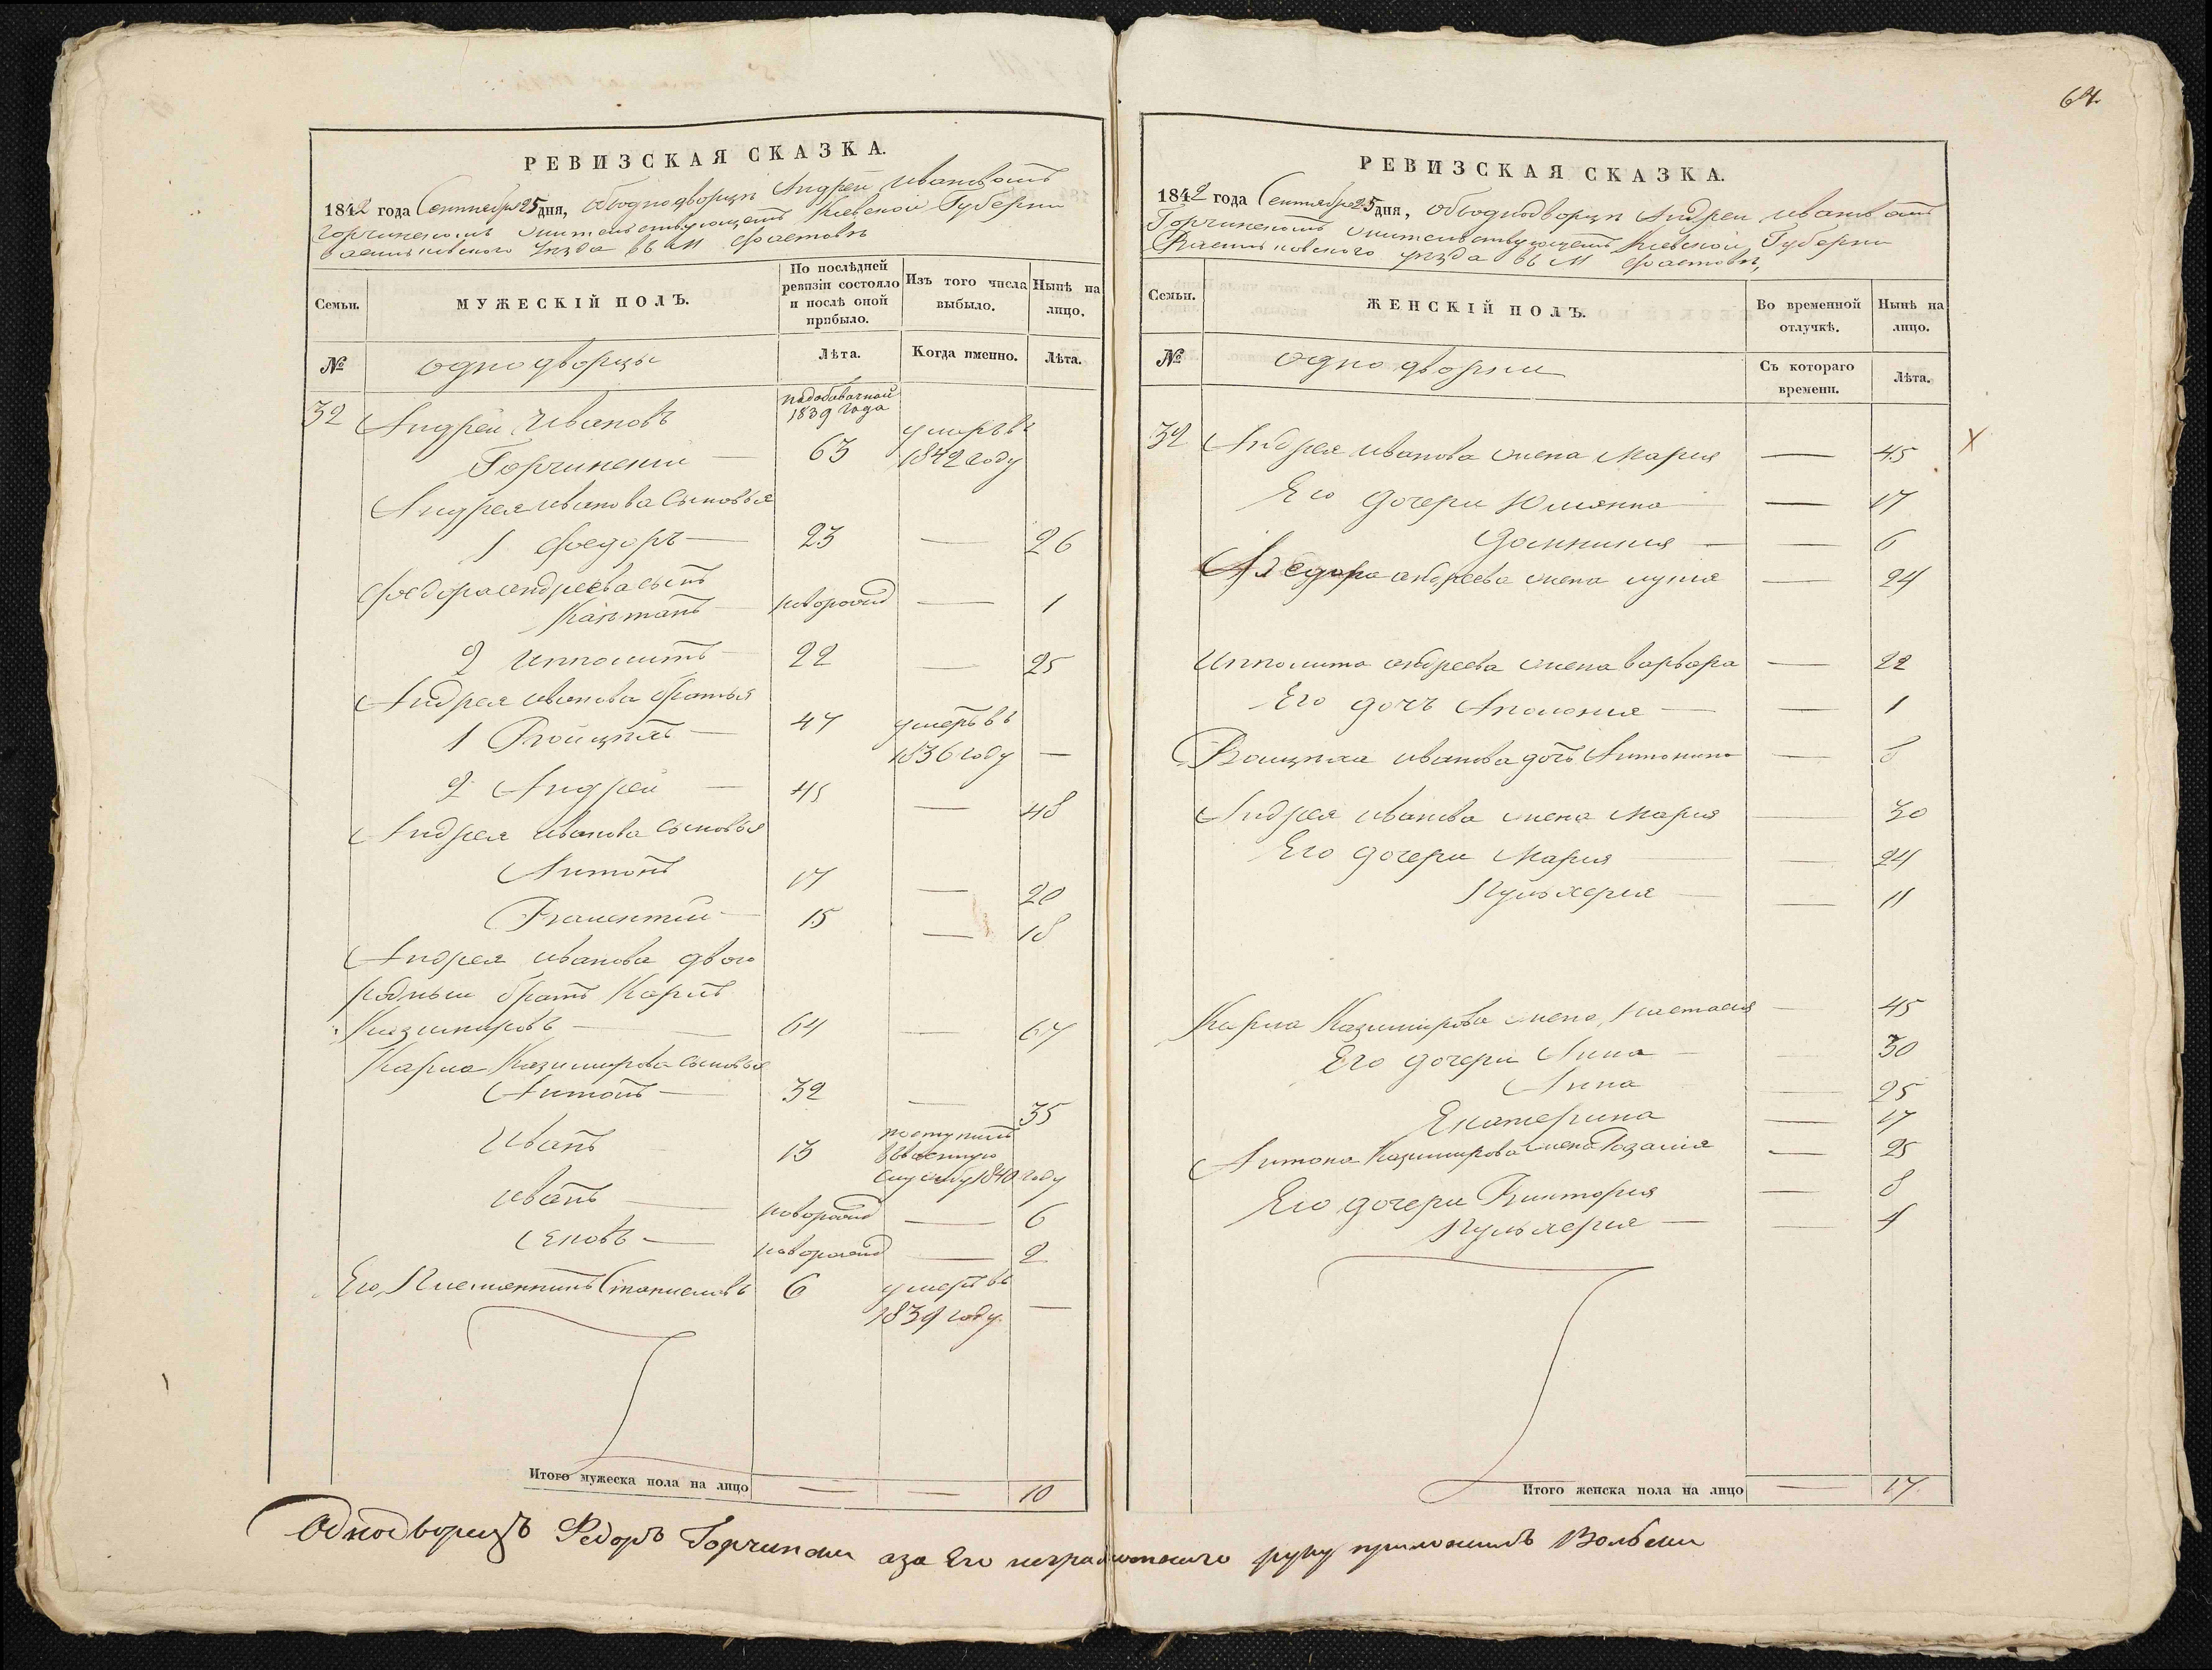 64.
РЕВИЗСКАЯ СКАЗКА.
1842 года Сентября 25 дня, Объоднодворцѣ Андреи Ивановомъ
Горчинскомъ жительствующемъ Киевской Губерни
Васильковскаго уѣзда въ М Фастовѣ
Семьи.
МУЖЕСКІЙ ПОЛЪ.
По послѣдней ревизіи состояло и послѣ оной прибыло.
Изъ того числа выбыло.
Нынѣ на лицо.
№
однодворцы
Лѣта.
Когда именно.
Лѣта.
1839 года
32 Андреи Ивановъ
Горчинский — 63 умеръ въ 1842 году
Андрея Иванова Сыновья
1 Феодоръ — 23 — 26
Феодора андреева сынъ
новорожд — 1
2 Ипполитъ 22 — 25
Андрея Иванова братья
1 Войцѣхъ — 47 умеръ въ 1836 году —
2 Андреи — 45 — 48
Андрея Иванова сыновья
Антонъ 17 — 20
15 — 18
Андрея Иванова двою
родныи братъ Карлъ
Казимировъ — 64 — 67
Карла Казимирова сыновья
Антонъ — 32 — 35
Иванъ 13 поступилъ въ военную службу 1840 году
Иванъ — новорожд — 6
новорожд — 2
Его Племянникъ Станиславъ 6 умеръ въ 1839 году —
Итого мужеска пола на лицо — — 10
РЕВИЗСКАЯ СКАЗКА.
1842 года Сентября 25 дня, Объоднодворцѣ Андреи Ивановомъ
Горчинскомъ жительствующемъ Киевской Губерни
Васильковскаго уѣзда въ М Фастовѣ,
Семьи.
ЖЕНСКІЙ ПОЛЪ.
Во временной отлучкѣ.
Нынѣ на лицо.
№
однодворки
Съ котораго времени.
Лѣта.
32 Андрея Иванова жена Мария — 45
Его дочери Юлианна — 17
— 6
Федора андреева жена — 24
Ипполита андреева жена варвара — 22
Его дочъ Аполония — 1
Войцѣха Иванова дочъ Антонина — 8
Андрея Иванова жена Мария — 30
Его дочери Мария — 24
Пульхерия — 11
Карла Казимирова жена Настасия — 45
Его дочери Анна — 30
Анна — 25
Екатерина — 17
Антона Казимирова жена Розалия — 25
Его дочери Виктория — 8
Пульхерия — 4
Итого женска пола на лицо — 17
Однодворецъ Федоръ Горчински аза Его неграмотнаго руку приложилъ